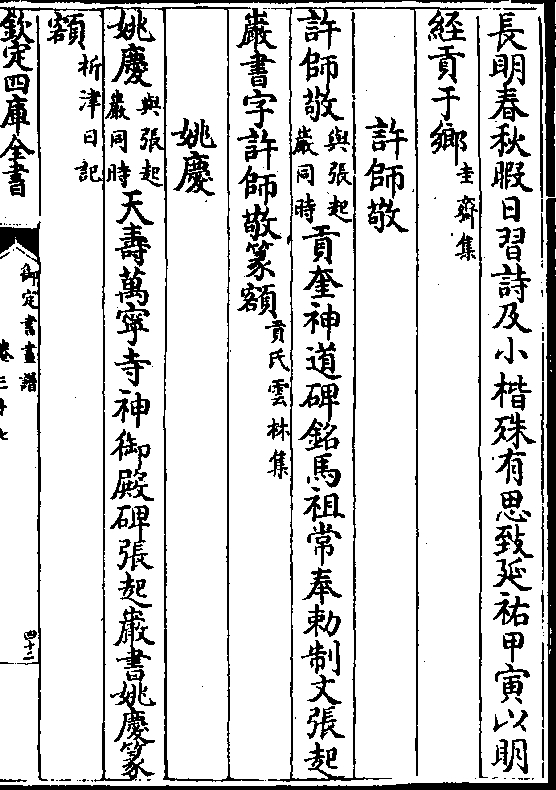 長明春秋暇日習詩及小楷殊有思致延祐甲寅以明
經貢于鄉圭齋集
許師敬
許師敬與張起巖同時貢奎神道碑銘馬祖常奉勅制文張起
巖書字許師敬篆額貢氏雲林集
姚慶
姚慶與張起巖同時天壽萬寧寺神御殿碑張起巖書姚慶篆
額析津日記
欽定四庫全書
御定書畫譜
卷三十七
四十二